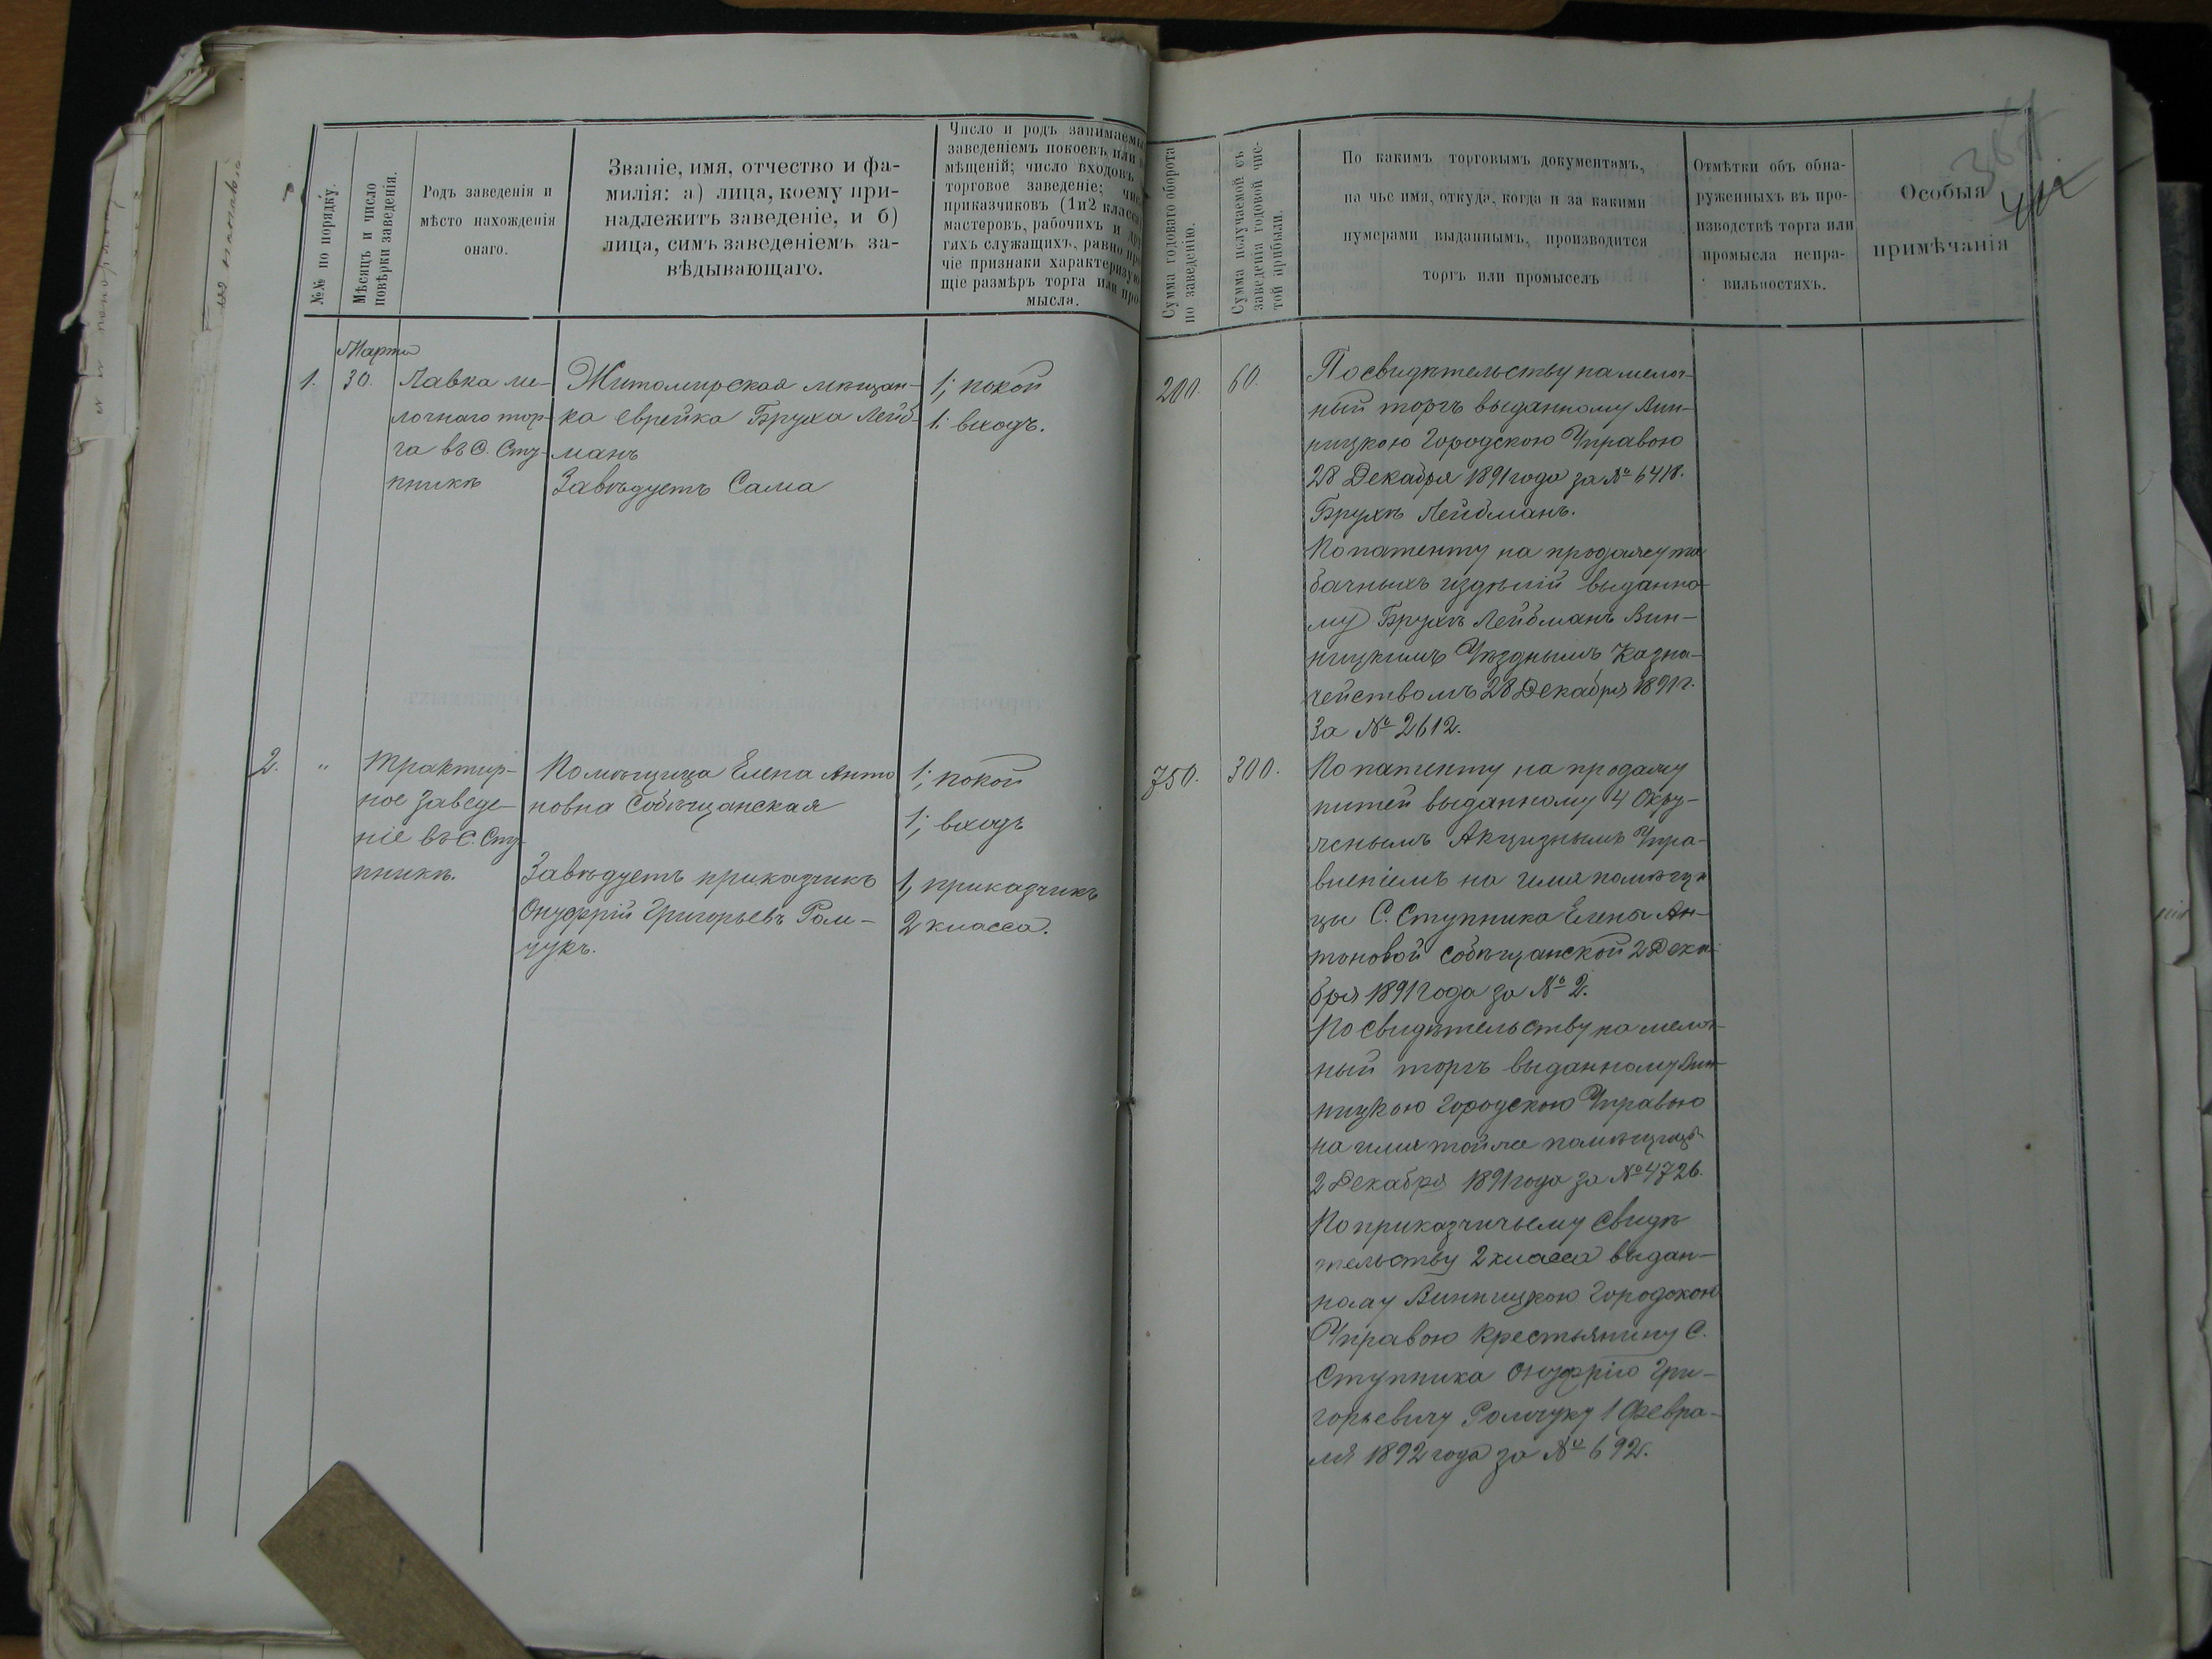 №№ по порядку.
Мѣсяцъ и число
повѣрки заведенія.
Родъ заведенія и
мѣсто нахожденія
онаго.
Званіе, имя, отчество и фа-
милія: а) лица, коему при-
надлежитъ заведеніе, и б)
лица, симъ заведеніемъ за-
вѣдывающаго.
Число и родъ занимаемы
заведеніемъ покоевъ, или
мѣщеній; число входовъ
торговое заведеніе; чис
приказчиковъ (1и2 класса
мастеровъ, рабочихъ и дру
гихъ служащихъ, равно про
чіе признаки характеризую
щіе размѣръ торга или про
мысла.
Сумма годоваго оборота
по заведенію.
Сумма получаемой съ
заведенія годовой чис-
той прибыли.
По какимъ торговымъ документамъ,
на чье имя, откуда, когда и за какими
нумерами выданнымъ, производится
торгъ или промыселъ
Отмѣтки объ обна-
руженныхъ въ про-
изводствѣ торга или
промысла непра-
вильностяхъ.
Особыя
примѣчанія
1.
Марта
30.
Лавка ме-
лочнаго тор-
га въ С. Сту-
пникѣ
Житомирская мѣщан-
ка еврейка Бруха Лейб-
манъ
Завѣдуетъ Сама
1; покой
1. входъ.
200.
60.
По свидѣтельству на мелоч-
ный торгъ выданному Вин-
ницкою Городскою Управою
28 Декабря 1891 года за № 6418.
Брухѣ Лейбманъ.
По патенту на продажу та
бачныхъ издѣлій выданно-
му Брухѣ Лейбманъ Вин-
ницкимъ Уѣзднымъ Казна-
чействомъ 28 Декабря 1891 г.
За № 2612.
2.
"
Трактир-
ное Заведе-
ніе въ С. Сту-
пникѣ.
Помѣщица Елена Анто
новна Собѣщанская
Завѣдуетъ приказчикъ
Онуфрій Григорьевъ Ром-
чукъ.
1; покой
1; входъ
1, приказчикъ
2 класса.
750.
300.
По патенту на продажу
питей выданному 4 Окру-
жнымъ Акцизнымъ Упра-
вленіемъ на имя помѣщи
цы С. Ступника Елены Ан-
тоновой Собѣщанской 2 Дека-
бря 1891 года за № 2.
По свидѣтельству на мелоч-
ный торгъ выданному Вин-
ницкою Городскою Управою
на имя той же помѣщицы
2 Декабря 1891 года за № 4726.
По приказчичьему Свидѣ
тельству 2 класса выдан-
ному Винницкою Городскою
Управою Крестьянину С.
Ступника Онуфрію Гри-
горьевичу Ромчуку 1 Февра-
ля 1892 года за № 692.